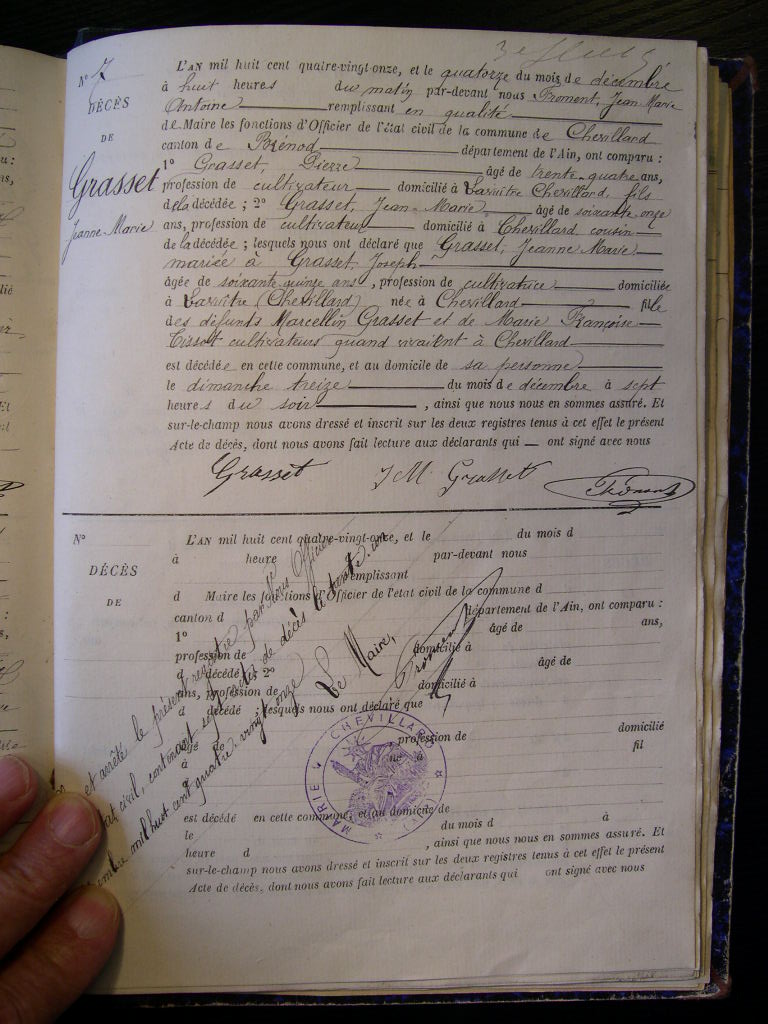 N° 7
DÉCÈS
DE
Grasset
Jeanne-Marie
L'AN mil huit cent quatre-vingt-onze, et le quatorze du mois de décembre
à huit heures du matin par-devant nous Froment, Jean-Marie
Antoine remplissant en qualité
de Maire les fonctions d'Officier de l'état civil de la commune de Chevillard
canton de Brénod département de l'Ain, ont comparu :
1° Grasset, Pierre âgé de trente-quatre ans,
profession de cultivateur domicilié à Chevillard, fils
de la décédée ; 2° Grasset, Jean-Marie âgé de soixante onze
ans, profession de cultivateur domicilié à Chevillard, cousin
de la décédée ; lesquels nous ont déclaré que Grasset, Jeanne Marie
mariée à Grasset, Joseph
âgée de soixante quinze ans, profession de cultivatrice domiciliée
à (Chevillard) née à Chevillard fille
des défunts Marcellin Grasset et de Marie Françoise
Tissot cultivateurs quand vivaient à Chevillard
est décédée en cette commune, et au domicile de sa personne
le dimanche treize du mois de décembre à sept
heures du soir, ainsi que nous nous en sommes assuré. Et
sur-le-champ nous avons dressé et inscrit sur les deux registres tenus à cet effet le présent
Acte de décès, dont nous avons fait lecture aux déclarants qui — ont signé avec nous
Grasset J M Grasset Froment
N°
DÉCÈS
DE
L'AN mil huit cent quatre-vingt-onze, et le du mois d
à heure par-devant nous
remplissant
d Maire les fonctions d'Officier de l'état civil de la commune d
canton d département de l'Ain, ont comparu :
1° âgé de ans,
profession de domicilié à
d décédé ; 2° âgé de
ans, profession de domicilié à
d décédé ; lesquels nous ont déclaré que
âgé de profession de domicilié
à né à fil
d
est décédé en cette commune, et au domicile de
le du mois d à
heure d , ainsi que nous nous en sommes assuré. Et
sur-le-champ nous avons dressé et inscrit sur les deux registres tenus à cet effet le présent
Acte de décès, dont nous avons fait lecture aux déclarants qui ont signé avec nous
et arrêté le présent registre par Nous Officier
civil, contenant sept actes de décès le trente-un
mil huit cent quatre-vingt onze
Le Maire,
Froment
MAIRIE CHEVILLARD